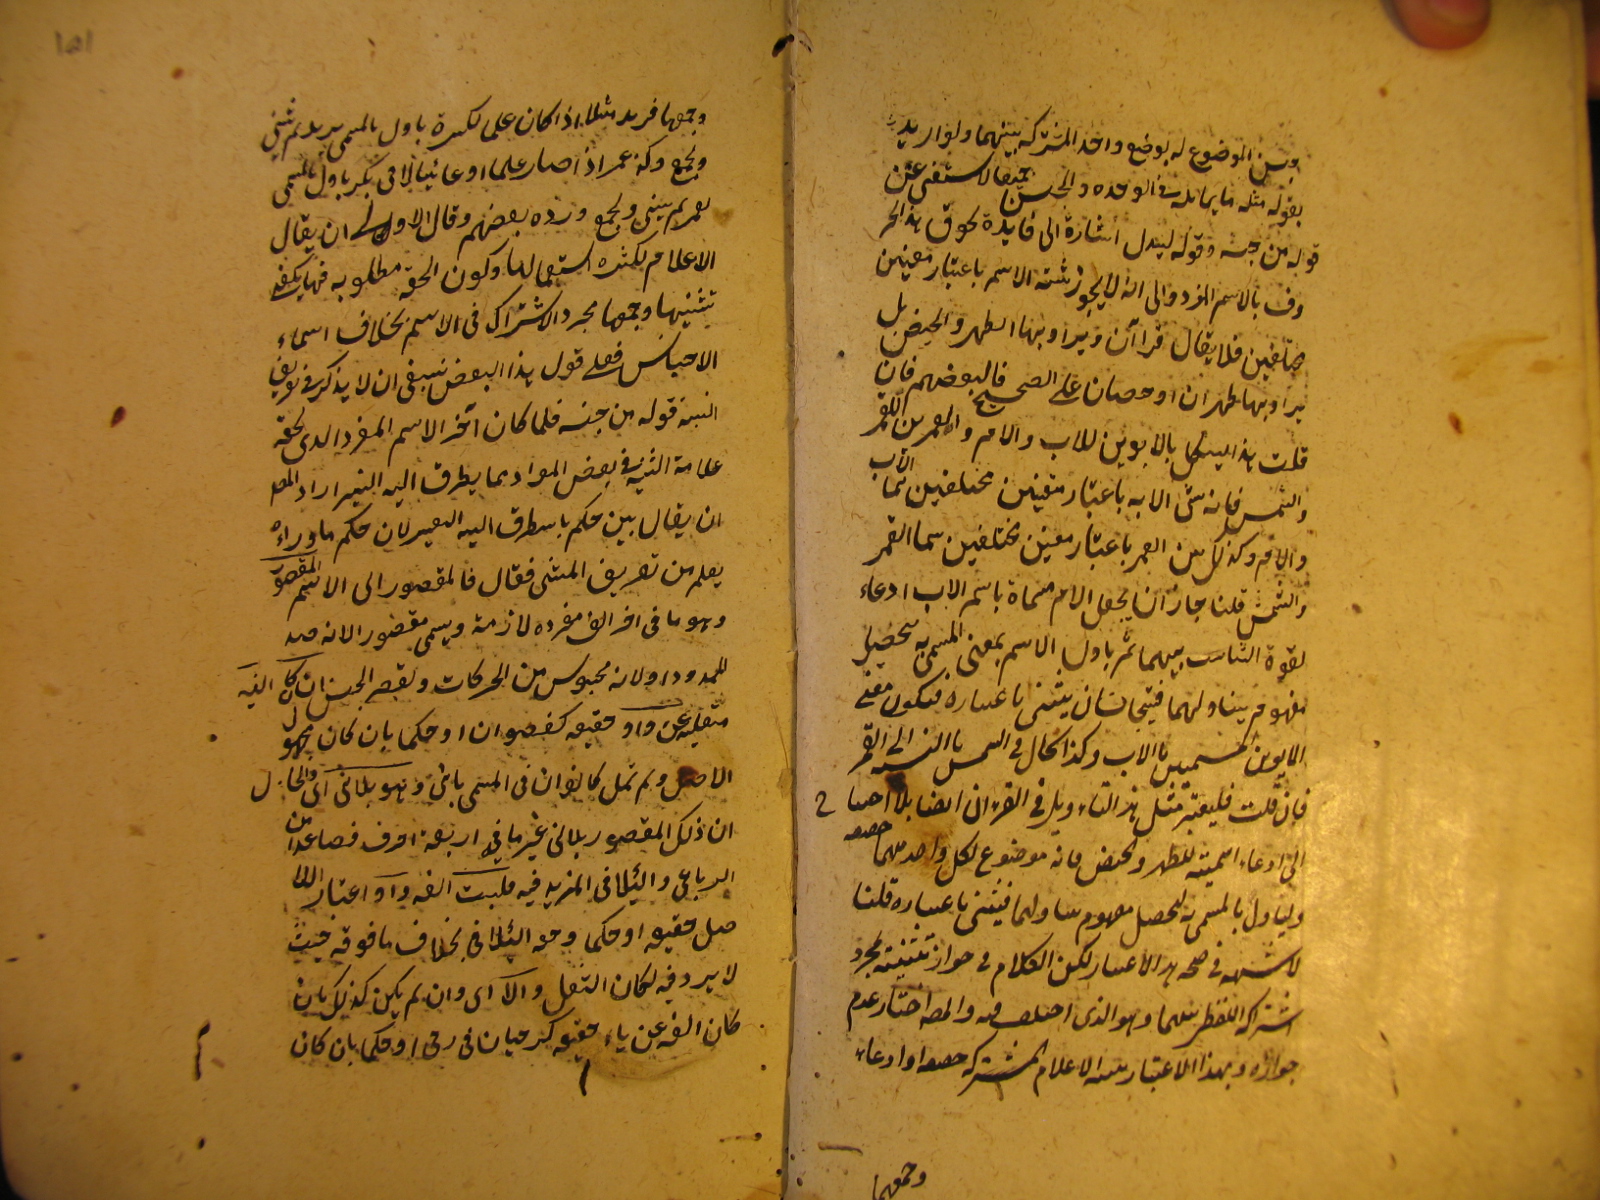 وبين الموضوع له بوضع واحد المشترك بينهما ولو اريد
بقوله مثله ما يماثله في الوحدة والجنس جميعا لاستغنى عن
قوله من جنسه وقوله ليدل اشارة الى فايدة لحوق هذا الحر
وف بالاسم المفرد والى انه لا يجوز تثنية الاسم باعتبار معنيين
مختلفين فلا يقال قرءان ويراد بهما الطهر والحيض بل
يراد بهما طهران او حيضان على الصحيح خلافا لبعضهم فان
قلت هذا يشكل بالابوين للاب والام والقمرين للقمر
والشمس فانه ثنى الاب باعتبار معنيين مختلفين هما الاب
والام وكذلك ثنى القمر باعتبار معنيين مختلفين هما القمر
والشمس قلنا جاز ان يجعل الام مسماة باسم الاب ادعاء
لقوة التناسب بينهما ثم ياول الاسم بمعنى المسمى به ليحصل
مفهوم يتناولهما فيتجانسان فيثنى باعتباره فيكون معنى
الابوين المسميين بالاب وكذا الحال في الشمس بالنسبة الى القمر
فان قلت فليعتبر مثل هذا التاويل في القرء ان ايضا بلا احتياج
الى ادعاء اسميته للطهر والحيض فانه موضوع لكل واحد منهما حقيقة
وليأول بالمسمى به ليحصل مفهوم يتناولهما فيثنى باعتباره قلنا
لا شبهة في صحة هذا الاعتبار لكن الكلام في جواز تثنيته بمجرد
اشتراك اللفظ بينهما وهو الذى اختلف فيه والمص اختار عدم
جوازه وبهذا الاعتبار تثنية الاعلام المشتركة حقيقة او ادعاء
وجمعها
١٥١
وجمعها فزيد مثلا اذا كان علما لكثيرة ياول بالمسمى بزيد ثم يثنى
ويجمع وكذا عمر اذا صار علما ادعائيا لابي بكر ياول بالمسمى
بعمر ثم يثنى ويجمع ورده بعضهم وقال الاولى ان يقال
الاعلام لكثرة استعمالها وكون الخفة مطلوبة فيها يكفى
تثنيتها وجمعها مجرد الاشتراك في الاسم بخلاف اسماء
الاجناس فعلى قول هذا البعض ينبغى ان لا يذكر في تعريف
التثنية قوله من جنسه فلما كان آخر الاسم المفرد الذى لحقه
علامة التثنية في بعض المواد مما يتطرق اليه التغير اراد المص
ان يبين حكم ما يتطرق اليه التغير لان حكم ما وراءه
يعلم من تعريف المثنى فقال فالمقصور الى الاسم المقصور
وهو ما في آخره الف مفردة لازمة ويسمى مقصورا لانه ضد
للممدود او لانه محبوس من الحركات والقصر الحبس ان كان الفه
منقلبة عن واو حقيقة كعصوان او حكما بان كان مجهول
الاصل ولم تمل كالوان في المسمى بالى وهو ثلاثي اى والحال
ان ذلك المقصور ثلاثى غير ما فيه اربعة احرف فصاعدا من
الرباعى والثلاثى المزيد فيه قلبت الفه واوا اعتبارا للا
صل حقيقة او حكما وخفة الثلاثى بخلاف ما فوقه حيث
لا يرد فيه لمكان الثقل والا اى وان لم يكن كذلك بان
كان الفه عن ياء حقيقة كرحيان في رحى او حكما بان كان